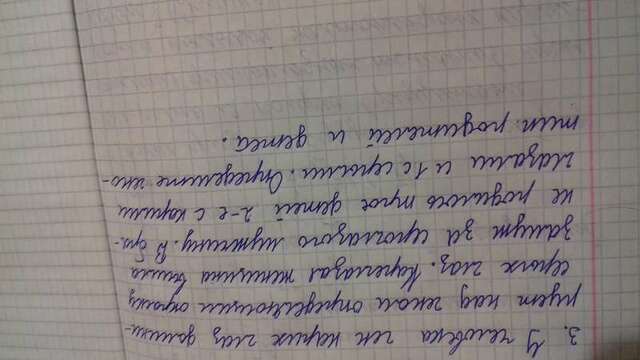 3. У человека ген карих глаз домини-
рует над геном определяющим окраску
серых глаз. Кареглазая женщина вышла
замуж за сероглазого мужчину. В бра-
ке родилось трое детей 2-е с карими
глазами и 1 с серыми. Определите гено-
тип родителей и детей.